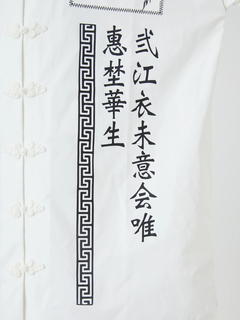 弐江衣未意会唯
惠埜華生